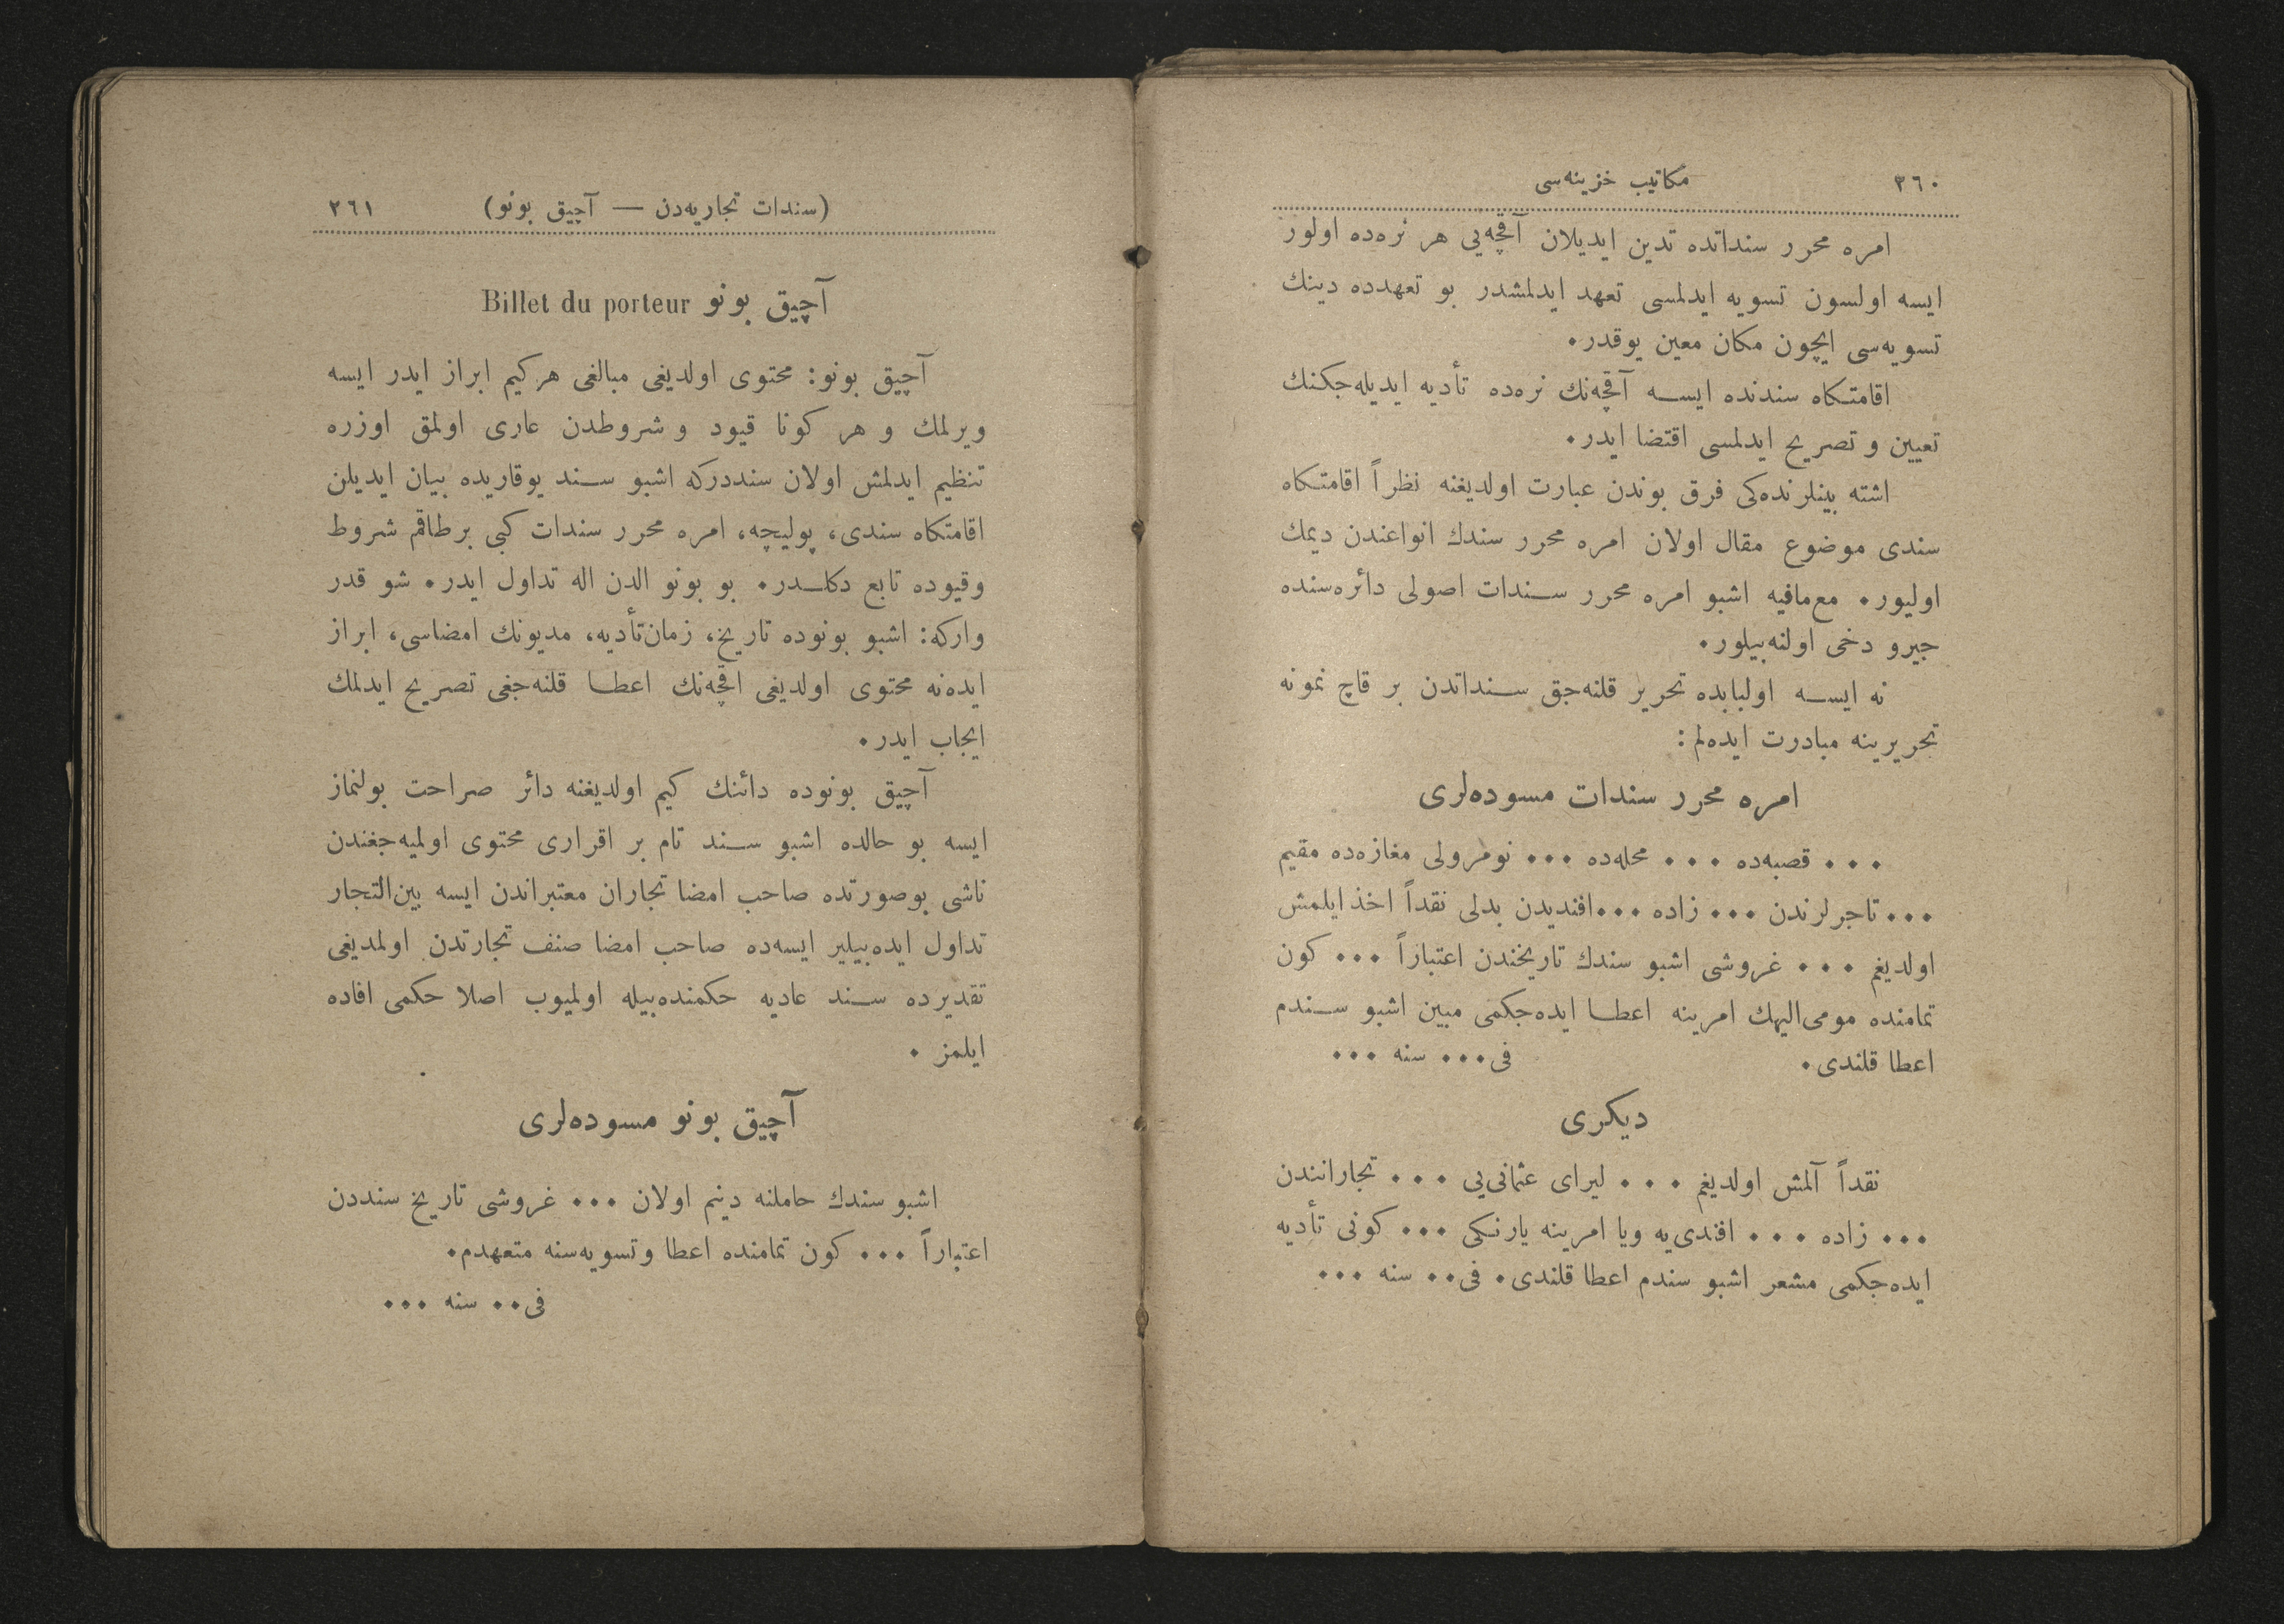 ٣٦٠
مكاتيب خزينه‌سى
امره محرر سنداتده تدين ايديلان آقچه‌يى هر نره‌ده اولور
ايسه اولسون تسويه ايدلمسى تعهد ايدلمشدر بو تعهدده دينك
تسويه‌سى ايچون مكان معين يوقدر.
اقامتكاه سندنده ايسه آقچه‌نك نره‌ده تأديه ايديله‌جكنك
تعيين و تصريح ايدلمسى اقتضا ايدر.
اشته بينلرنده‌كى فرق بوندن عبارت اولديغنه نظراً اقامتكاه
سندى موضوع مقال اولان امره محرر سندك انواعندن ديمك
اوليور. مع‌مافيه اشبو امره محرر سندات اصولى دائره‌سنده
جيرو دخى اولنه‌بيلور.
نه ايسه اولبابده تحرير قلنه‌جق سنداتدن بر قاچ نمونه
تحريرينه مبادرت ايده‌لم :
امره محرر سندات مسوده‌لرى
... قصبه‌ده ... محله‌ده ... نومرولى مغازه‌ده مقيم
... تاجرلرندن ... زاده ... افنديدن بدلى نقداً اخذ ايلمش
اولديغم ... غروشى اشبو سندك تاريخندن اعتباراً ... كون
تمامنده مومى‌اليهك امرينه اعطا ايده‌جكمى مبين اشبو سندم
اعطا قلندى. فى ... سنه ...
ديكرى
نقداً آلمش اولديغم ... ليراى عثمانى‌يى ... تجارانندن
... زاده ... افندى‌يه ويا امرينه يارنكى ... كونى تأديه
ايده‌جكمى مشعر اشبو سندم اعطا قلندى. فى .. سنه ...
(سندات تجاريه‌دن — آچيق بونو)
٣٦١
آچيق بونو Billet du porteur
آچيق بونو: محتوى اولديغى مبالغى هركيم ابراز ايدر ايسه
ويرلمك و هر كونا قيود و شروطدن عارى اولمق اوزره
تنظيم ايدلمش اولان سنددركه اشبو سند يوقاريده بيان ايديلن
اقامتكاه سندى، پوليچه، امره محرر سندات كبى برطاقم شروط
وقيوده تابع دكلدر. بو بونو الدن اله تداول ايدر. شو قدر
واركه: اشبو بونوده تاريخ، زمان‌تأديه، مديونك امضاسى، ابراز
ايده‌نه محتوى اولديغى اقچه‌نك اعطا قلنه‌جغى تصريح ايدلمك
ايجاب ايدر.
آچيق بونوده دائنك كيم اولديغنه دائر صراحت بولنماز
ايسه بو حالده اشبو سند تام بر اقرارى محتوى اولميه‌جغندن
ناشى بوصورتده صاحب امضا تجاران معتبراندن ايسه بين‌التجار
تداول ايده‌بيلير ايسه‌ده صاحب امضا صنف تجارتدن اولمديغى
تقديرده سند عاديه حكمنده‌بيله اولميوب اصلا حكمى افاده
ايلمز .
آچيق بونو مسوده‌لرى
اشبو سندك حاملنه دينم اولان ... غروشى تاريخ سنددن
اعتباراً ... كون تمامنده اعطا وتسويه‌سنه متعهدم.
فى .. سنه ...